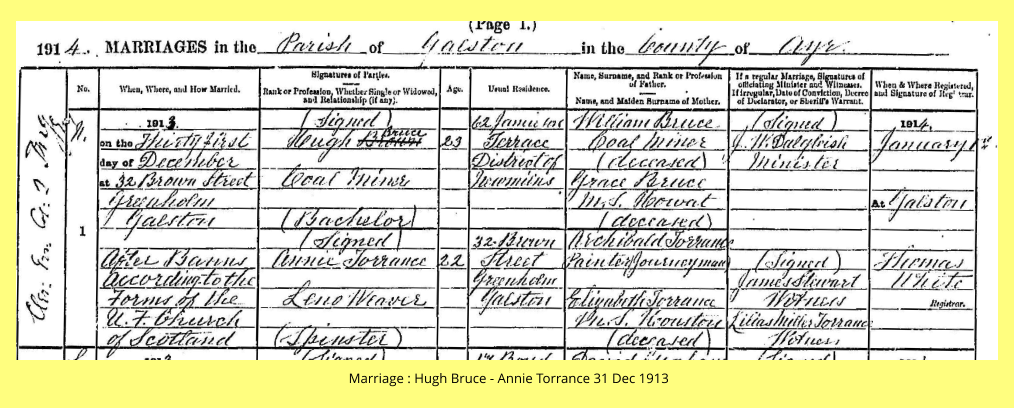 (Page 1.)
1914. MARRIAGES in the Parish of Galston in the County of Ayr
No.
When, Where, and How Married.
Signatures of Parties.
Rank or Profession, Whether Single or Widowed, and Relationship (if any).
Age.
Usual Residence.
Name, Surname, and Rank or Profession of Father.
Name, and Maiden Surname of Mother.
If a regular Marriage, Signatures of officiating Minister and Witnesses.
If irregular, Date of Conviction, Decree of Declarator, or Sheriff's Warrant.
When & Where Registered, and Signature of Reg'trar.
1
1913
on the Thirty first
day of December
at 32 Brown Street
Greenholm
Galston
After Banns
According to the
Forms of the
U. F. Church
of Scotland
(Signed)
Bruce
Hugh Brown
Coal Miner
(Bachelor)
(Signed)
Annie Torrance
Leno Weaver
(Spinster)
23
22
Terrace
District of
Newmilns
32 Brown
Street
Greenholm
Galston
William Bruce
Coal Miner
(deceased)
Grace Bruce
M.S. Howat
(deceased)
Archibald Torrance
Painter Journeyman
Elizabeth Torrance
M.S. Houston
(deceased)
(Signed)
J. W. Dalgleish
Minister
(Signed)
James Stewart
Witness
Lilias Miller Torrance
Witness
1914.
January 1st
At Galston
Thomas
White
Registrar.
Marriage : Hugh Bruce - Annie Torrance 31 Dec 1913